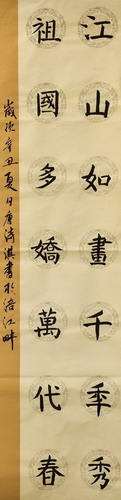 江山如畫千年秀
祖國多嬌萬代春
歲次辛丑夏日唐濤淇書於涪江畔